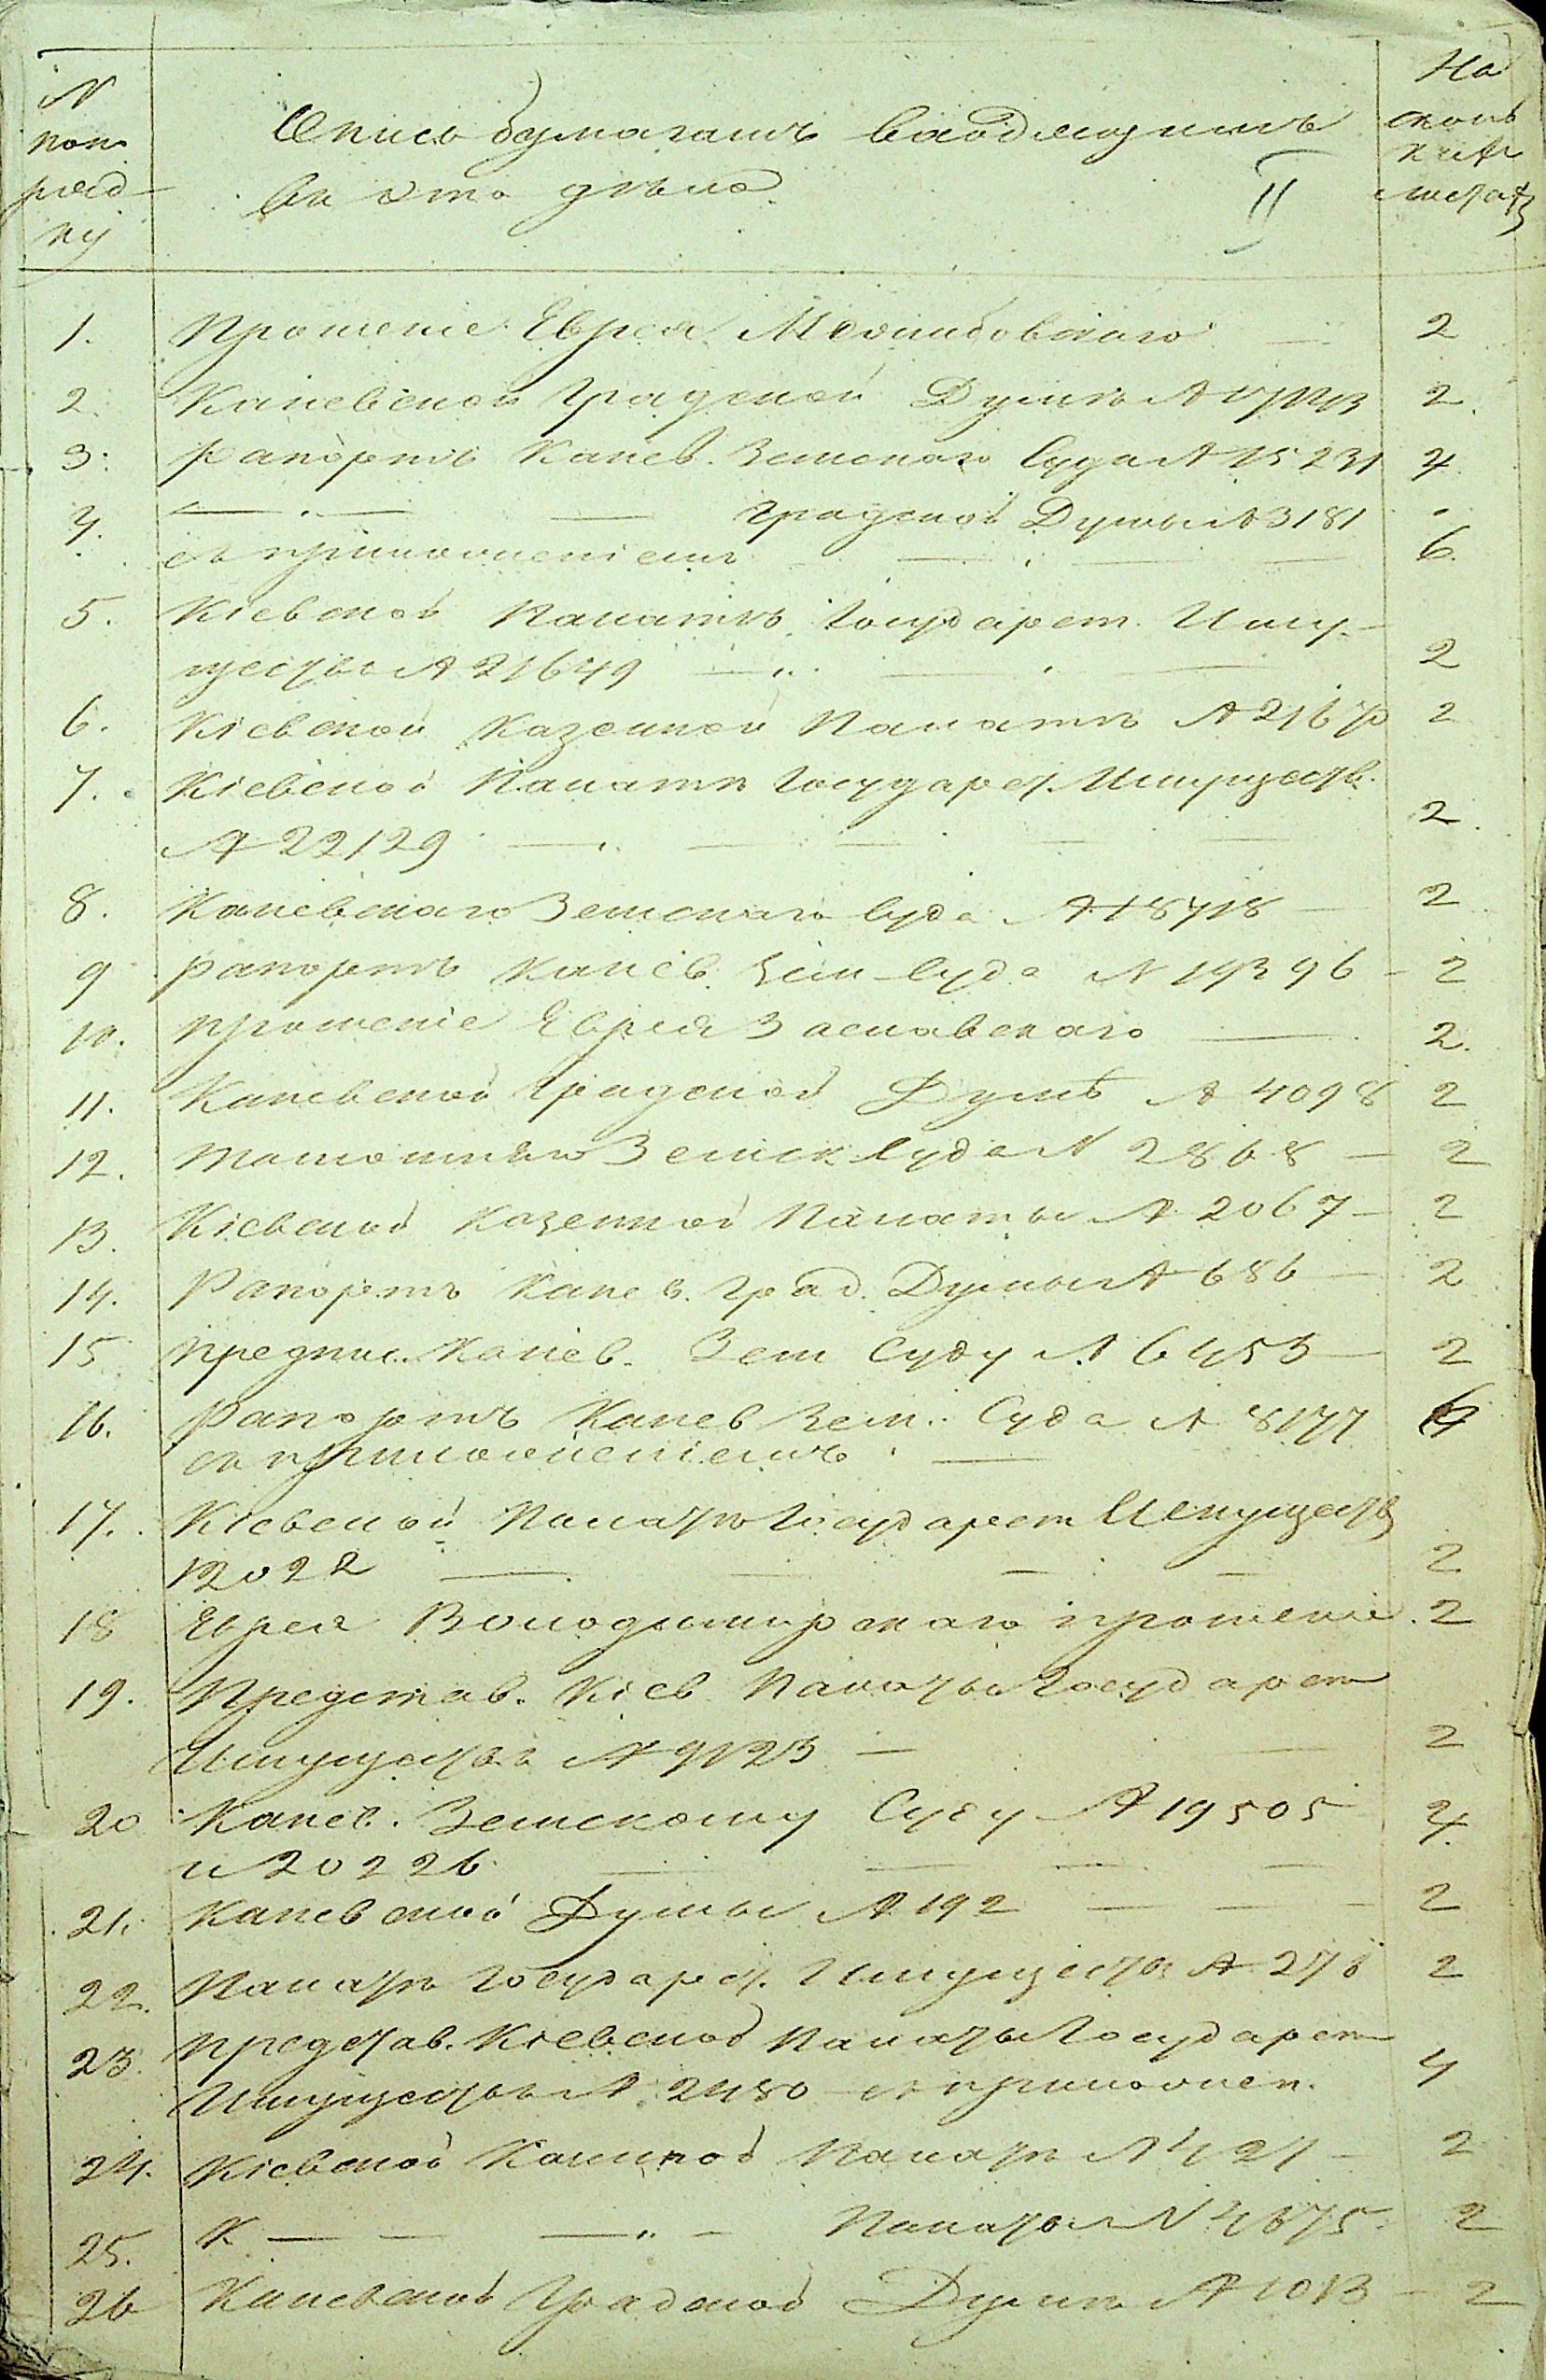 № попоряд-ку
Опись бумагамъ входящимъ
въ это дѣло
II
На сколькихъ листахъ
1. Прошеніе Еврея 2
2. Каневской Градской Думѣ № 2.
3. Рапортъ Канев. Земскаго Суда № 15231 4.
4. — — Градской Думы № 3181
съ приложеніемъ — 6.
5. Кіевской Палатѣ Государст. Иму-
ществъ № 21649 — 2
6. Кіевской Казенной Палатѣ № 2
7. Кіевской Палатѣ Государст. Имуществ.
№ 22129 — 2.
8. Каневскаго Земскаго Суда № 18718 — 2
9 Рапортъ Канев. Зем Суда № 19396 — 2
10. Прошеніе Еврея Заславскаго — 2.
11. Каневской Градской Думѣ № 4098 2
12. Земск. Суда № 2868 — 2
13. Кіевской Казенной Палаты № 2067 — 2
14. Рапортъ Канев. Град. Думы № 686 — 2
15 Предпис. Канев. Зем Суду № 6453 — 2
16. Рапортъ Канев Зем. Суда № 8177
съ приложеніемъ —
17. Кіевской Палатѣ Государст Имуществ
12022 — 2
18 Еврея Володимирскаго прошеніе. 2
19. Представ. Кіев Палаты Государст
Имуществъ № 9123 — 2
20 Канев. Земскому Суду № 19505
и 20226 — 4.
21. Каневской Думы № 192 — 2
22. Палатѣ Государст. Имуществъ № 276 2
23. Представ. Кіевской Палаты Государст
Имуществъ № 2480 съ приложен. 4
24. Кіевской Палатѣ № — 2
25. К — — Палаты № 4675 2
26 Каневской Градской Думѣ № 1013 — 2